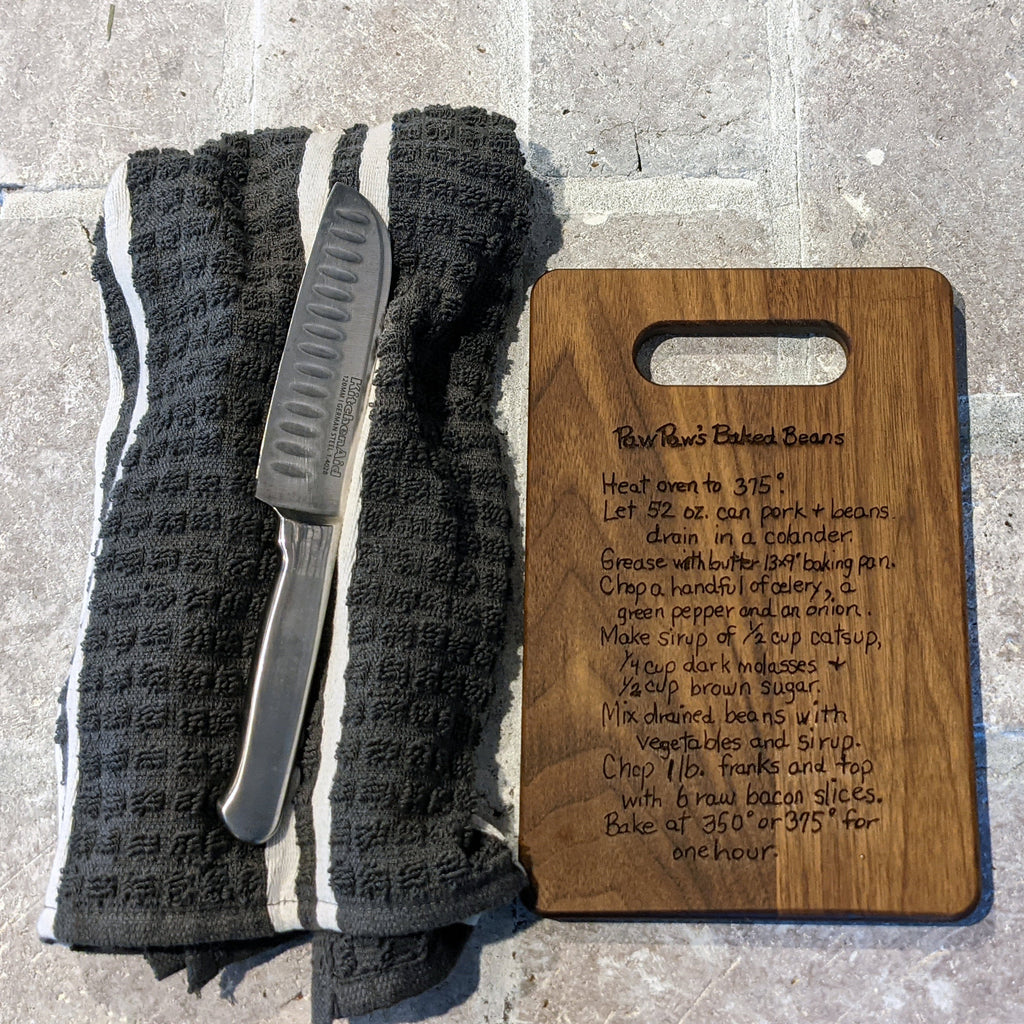 KitchenAid
PawPaw's Baked Beans
Heat oven to 375°.
Let 52 oz. can pork + beans
drain in a colander.
Grease with butter 13x9" baking pan.
Chop a handful of celery, a
green pepper and an onion.
Make sirup of 1/2 cup catsup,
1/4 cup dark molasses +
1/2 cup brown sugar.
Mix drained beans with
vegetables and sirup.
Chop 1 lb. franks and top
with 6 raw bacon slices.
Bake at 350° or 375° for
one hour.